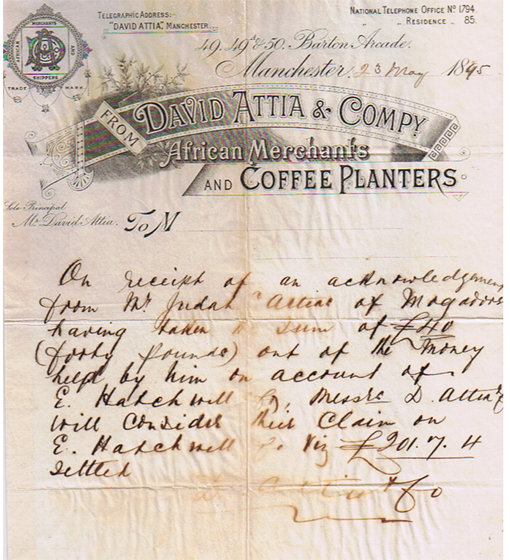 TELEGRAPHIC ADDRESS:-
"DAVID ATTIA", MANCHESTER.
NATIONAL TELEPHONE OFFICE No 1794.
" " RESIDENCE " 85.
AFRICAN MERCHANTS AND SHIPPERS
TRADE MARK
49, 49a & 50, Barton Arcade,
Manchester, 23 May 1895
FROM DAVID ATTIA & COMPY
African Merchants
AND COFFEE PLANTERS
Sole Principal
Mr David Attia.
To M
On receipt of an acknowledgement
from Mr Judah Attia of Mogador
having taken the sum of £40
(forty pounds) out of the money
held by him on account of
E. Hatchwell Messrs D. Attia & Co
will consider their claim on
E. Hatchwell & Co Viz £201.7.4
settled
& Co